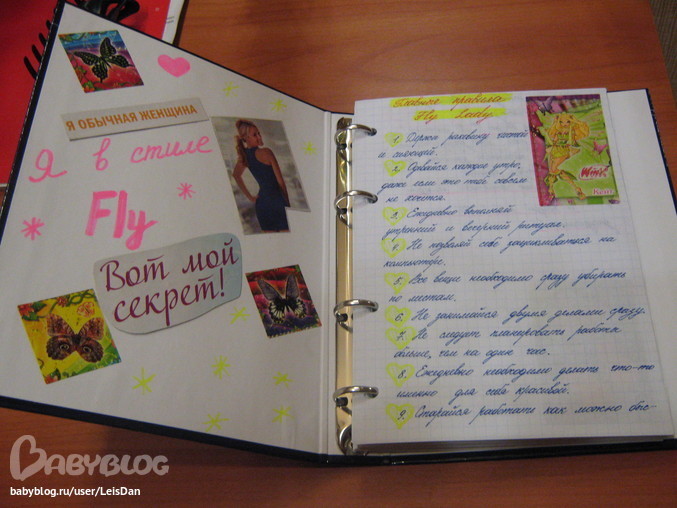 Я ОБЫЧНАЯ ЖЕНЩИНА
Я в стиле
Fly
Вот мой
секрет!
Главные правила
Fly Lady
1. Держи раковину чистой
и сияющей.
2. Одевайся каждое утро,
даже если это тебе совсем
не хочется.
3. Ежедневно выполняй
утренний и вечерний ритуал.
4. Не позволяй себе зацикливаться на
компьютере.
5. Все вещи необходимо сразу убирать
по местам.
6. Не занимайся двумя делами сразу.
7. Не следует планировать работы
больше, чем на один час.
8. Ежедневно необходимо делать что-то
именно для себя красивой.
9. Старайся работать как можно быс-
Winx
BABYBLOG
babyblog.ru/user/LeisDan